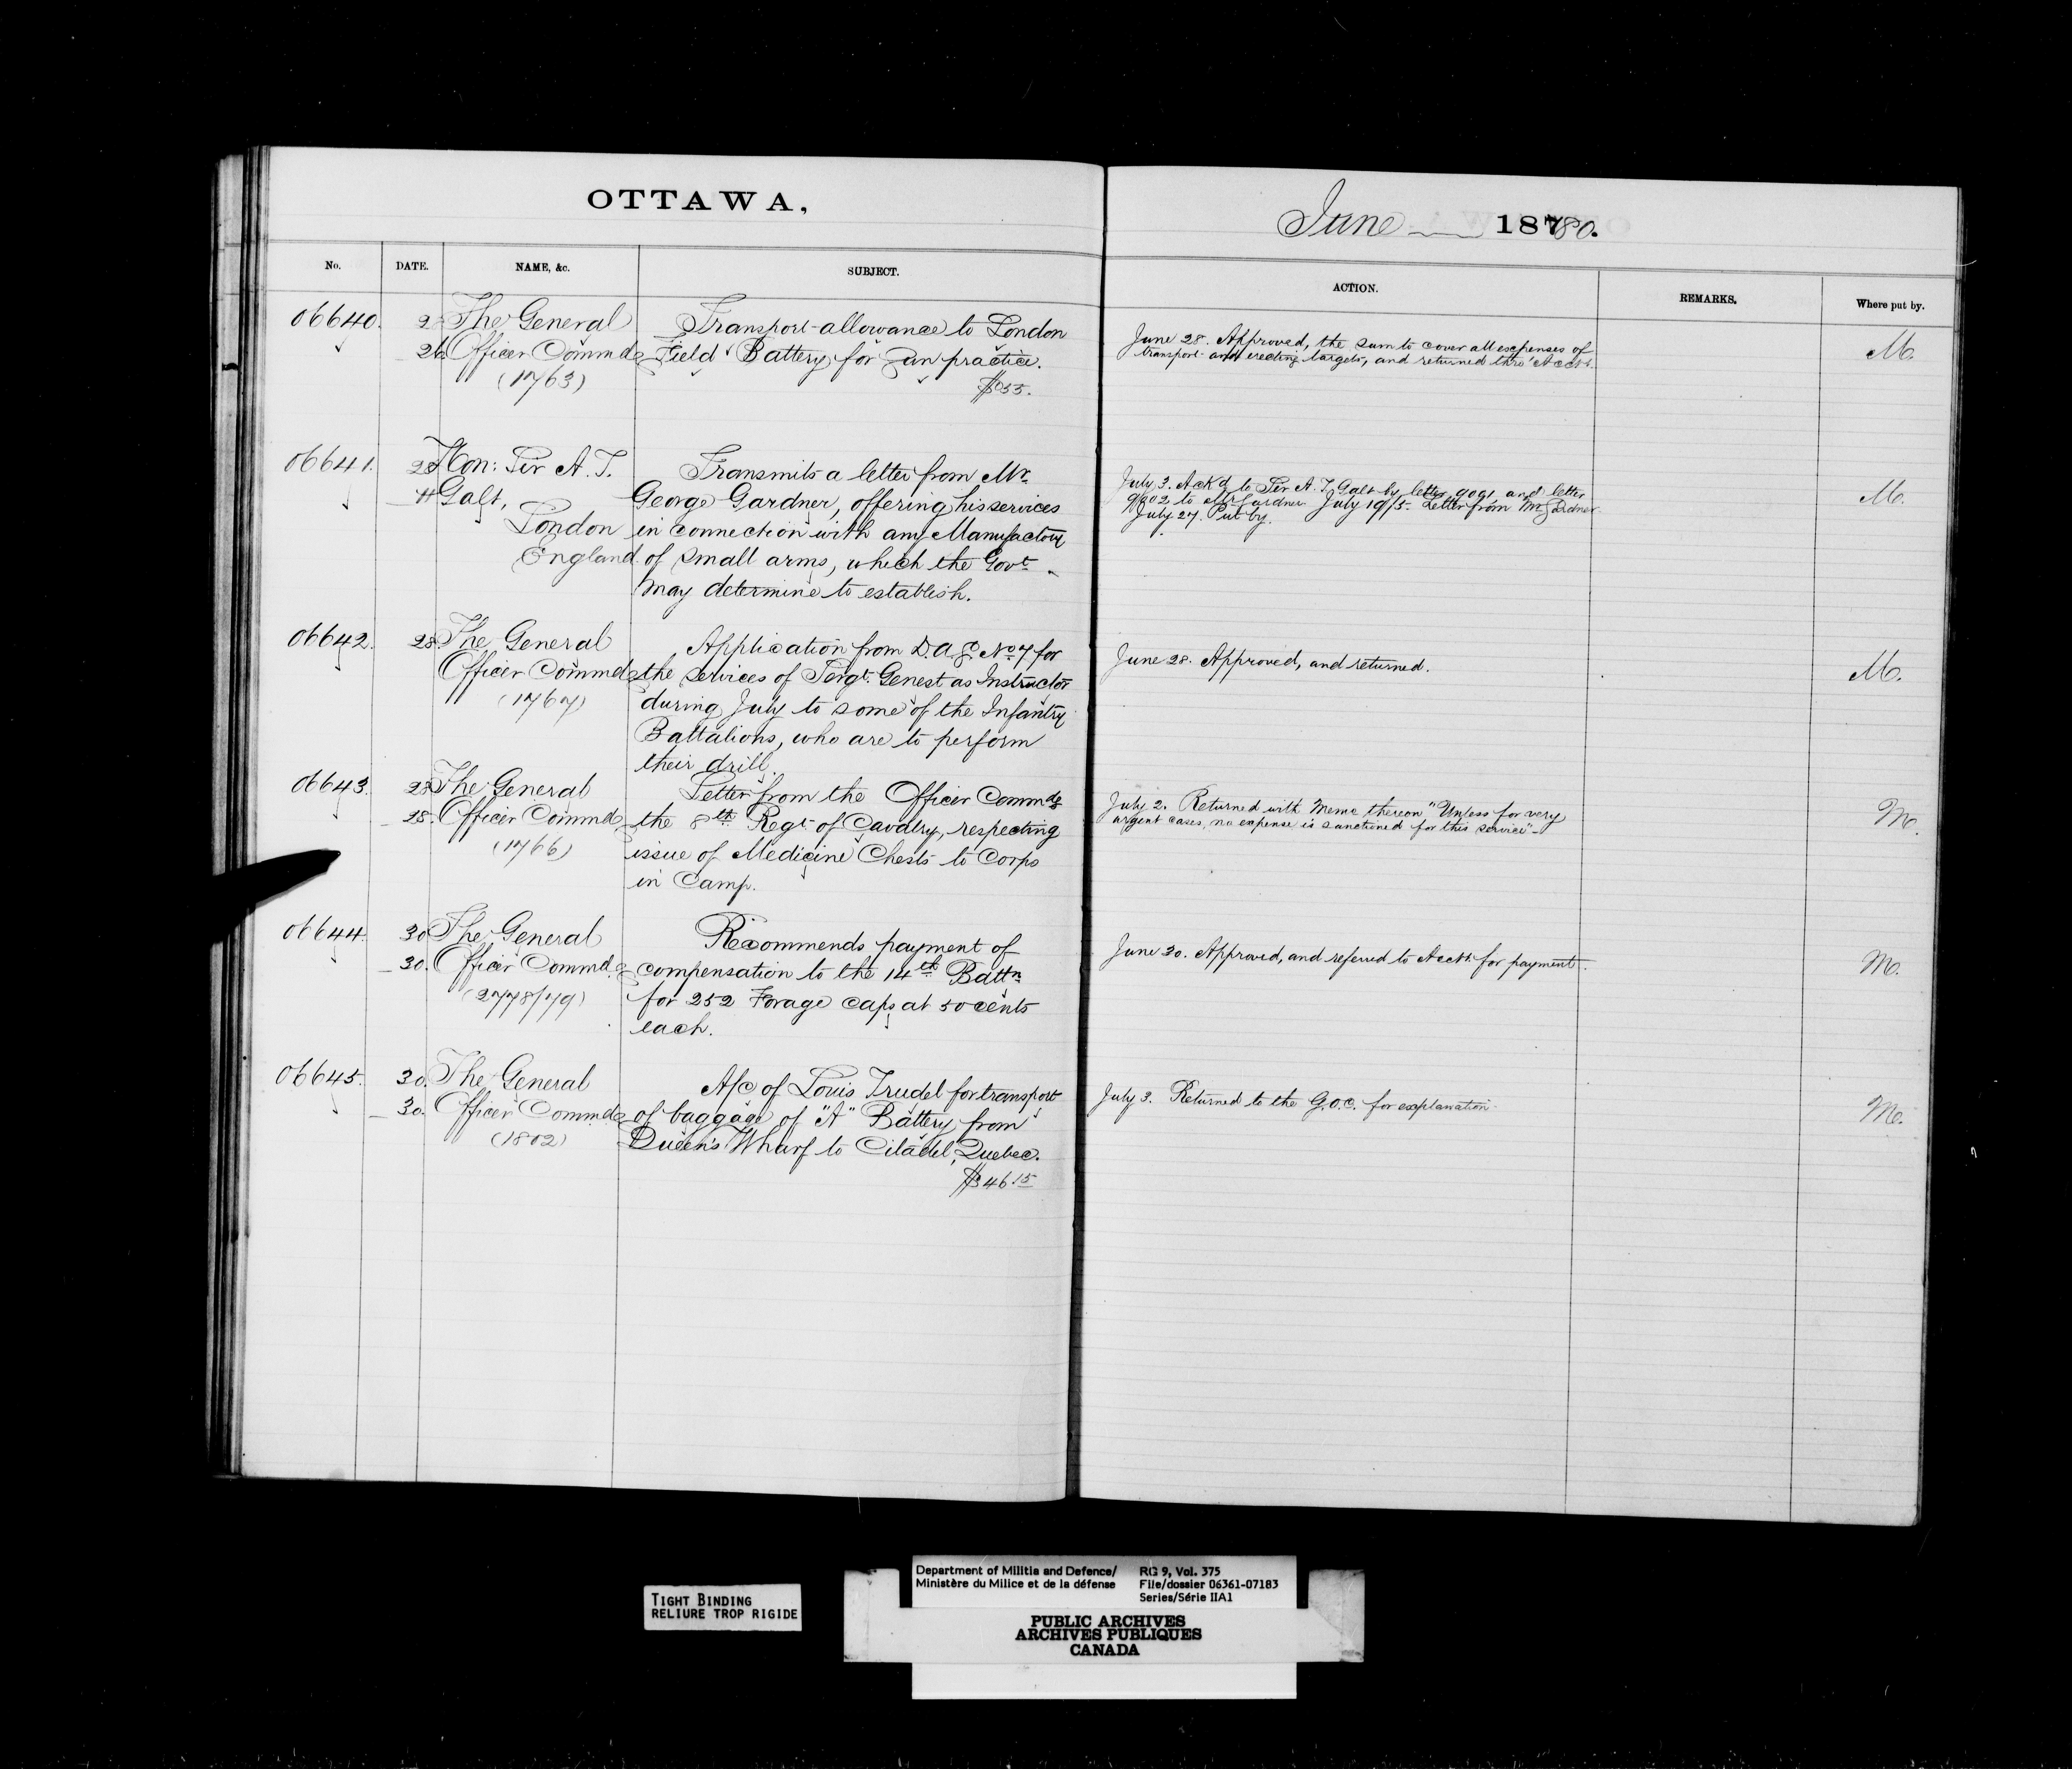 OTTAWA,
June 1880.
No. DATE. NAME, &c. SUBJECT. ACTION. REMARKS. Where put by.
06640. The General Transport allowance to London
26 Officer Commdg Field Battery for Gun practice.
(1763) $55.
June 28. Approved, the sum to cover all expenses of
transport and erecting targets, and returned thro' Acct.
M.
06641. 28 Hon: Sir A. T. Transmits a letter from Mr.
Galt, George Gardner, offering his services
London in connection with any Manufactory
England. of small arms, which the Govt.
may determine to establish.
July 3. Ack'd to Sir A. T. Galt by letter 9901, and letter
9902 to Mr Gardner. July 19/5. Letter from Mr Gardner
July 27. Put by.
M.
06642. 28. The General Application from D.A.G. No 7 for
Officer Commdg the services of Sergt. Genest as Instructor
(1767) during July to some of the Infantry
Battalions, who are to perform
their drill.
June 28. Approved, and returned.
M.
06643. 28 The General Letter from the Officer Commdg
28. Officer Commdg the 8th Regt. of Cavalry, respecting
(1766) issue of Medicine Chests to Corps
in Camp.
July 2. Returned with Memo thereon "Unless for very
urgent cases, no expense is sanctioned for this service"
M.
06644. 30 The General Recommends payment of
30. Officer Commdg compensation to the 14th Battn.
(2778/79) for 252 Forage caps at 50 cents
each.
June 30. Approved, and referred to Acct. for payment.
M.
06645. 30. The General A/c of Louis Trudel for transport
30. Officer Commdg of baggage of "A" Battery from
(1802) Queen's Wharf to Citadel, Quebec.
$46.15
July 3. Returned to the G.O.C. for explanation.
M.
TIGHT BINDING
RELIURE TROP RIGIDE
Department of Militia and Defence/ RG 9, Vol. 375
Ministère du Milice et de la défense File/dossier 06361-07183
Series/Série IIA1
PUBLIC ARCHIVES
ARCHIVES PUBLIQUES
CANADA